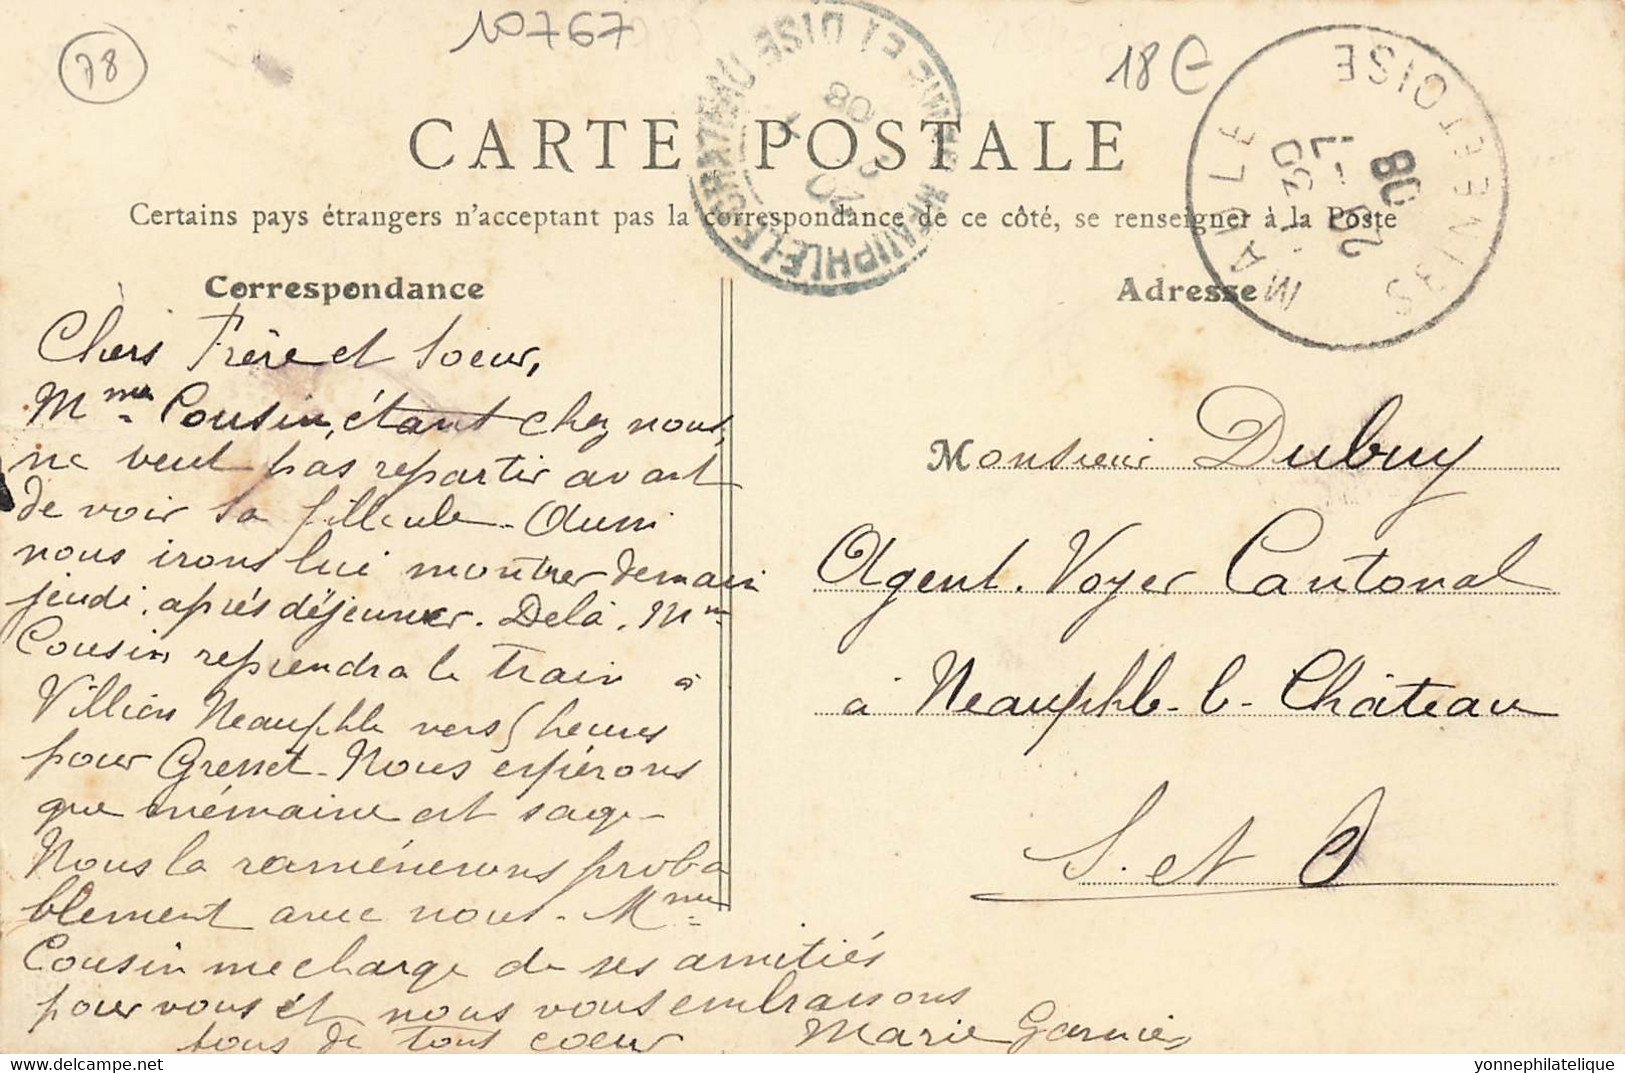 10767
78
18 €
CARTE POSTALE
Certains pays étrangers n'acceptant pas la correspondance de ce côté, se renseigner à la Poste
MAULE
SEINE ET OISE
20
08
NEAUPHLE-LE-CHATEAU
SEINE ET OISE
20
08
Correspondance
Chers Frère et Soeur,
Mme Cousin, étant chez nous,
ne veut pas repartir avant
de voir sa filleule. Aussi
nous irons lui montrer demain
jeudi, après déjeuner. Delà, Mme
Cousin reprendra le train à
Villiers Neauphle vers 5 heures
pour Gresset. Nous espérons
que mémaine est sage.
Nous la ramènerons proba
blement avec nous. Mme
Cousin me charge de ses amitiés
pour vous et nous vous embrassons
tous de tout coeur Marie Garnier
Adresse
Monsieur Dubuy
Agent-Voyer Cantonal
à Neauphle-le-Château
S. et O
https://www.delcampe.net
yonnephilatelique